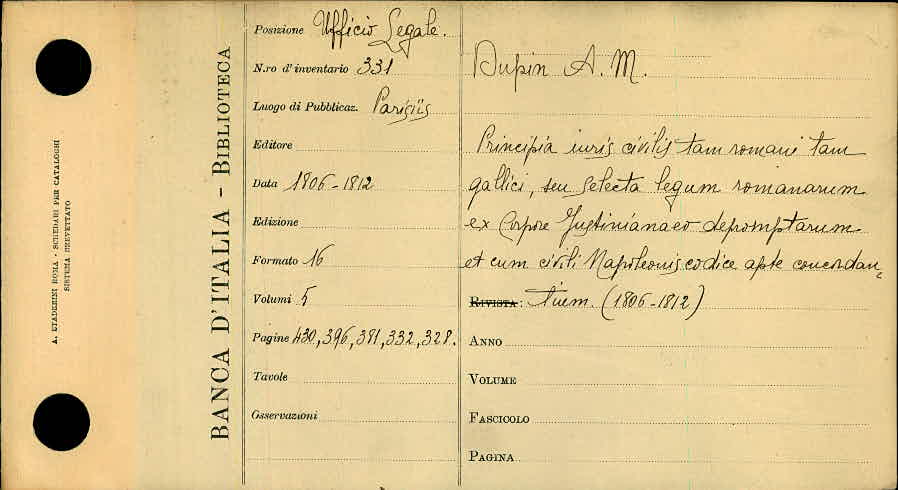 A. STADERINI ROMA - SCHEDARI PER CATALOGHI
SISTEMA BREVETTATO
BANCA D'ITALIA - BIBLIOTECA
Posizione Ufficio Legale.
N.ro d'inventario 331
Luogo di Pubblicaz. Parisiis
Editore
Data 1806-1812
Edizione
Formato 16
Volumi 5
Pagine 430, 396, 381, 332, 328.
Tavole
Osservazioni
Dupin A. M.
Principia iuris civilis tam romani tam
gallici, seu selecta legum romanarum
ex Corpore Justinianaeo depromptarum
et cum civili Napoleonis codice apte concordan=
RIVISTA: tium. (1806-1812)
ANNO
VOLUME
FASCICOLO
PAGINA